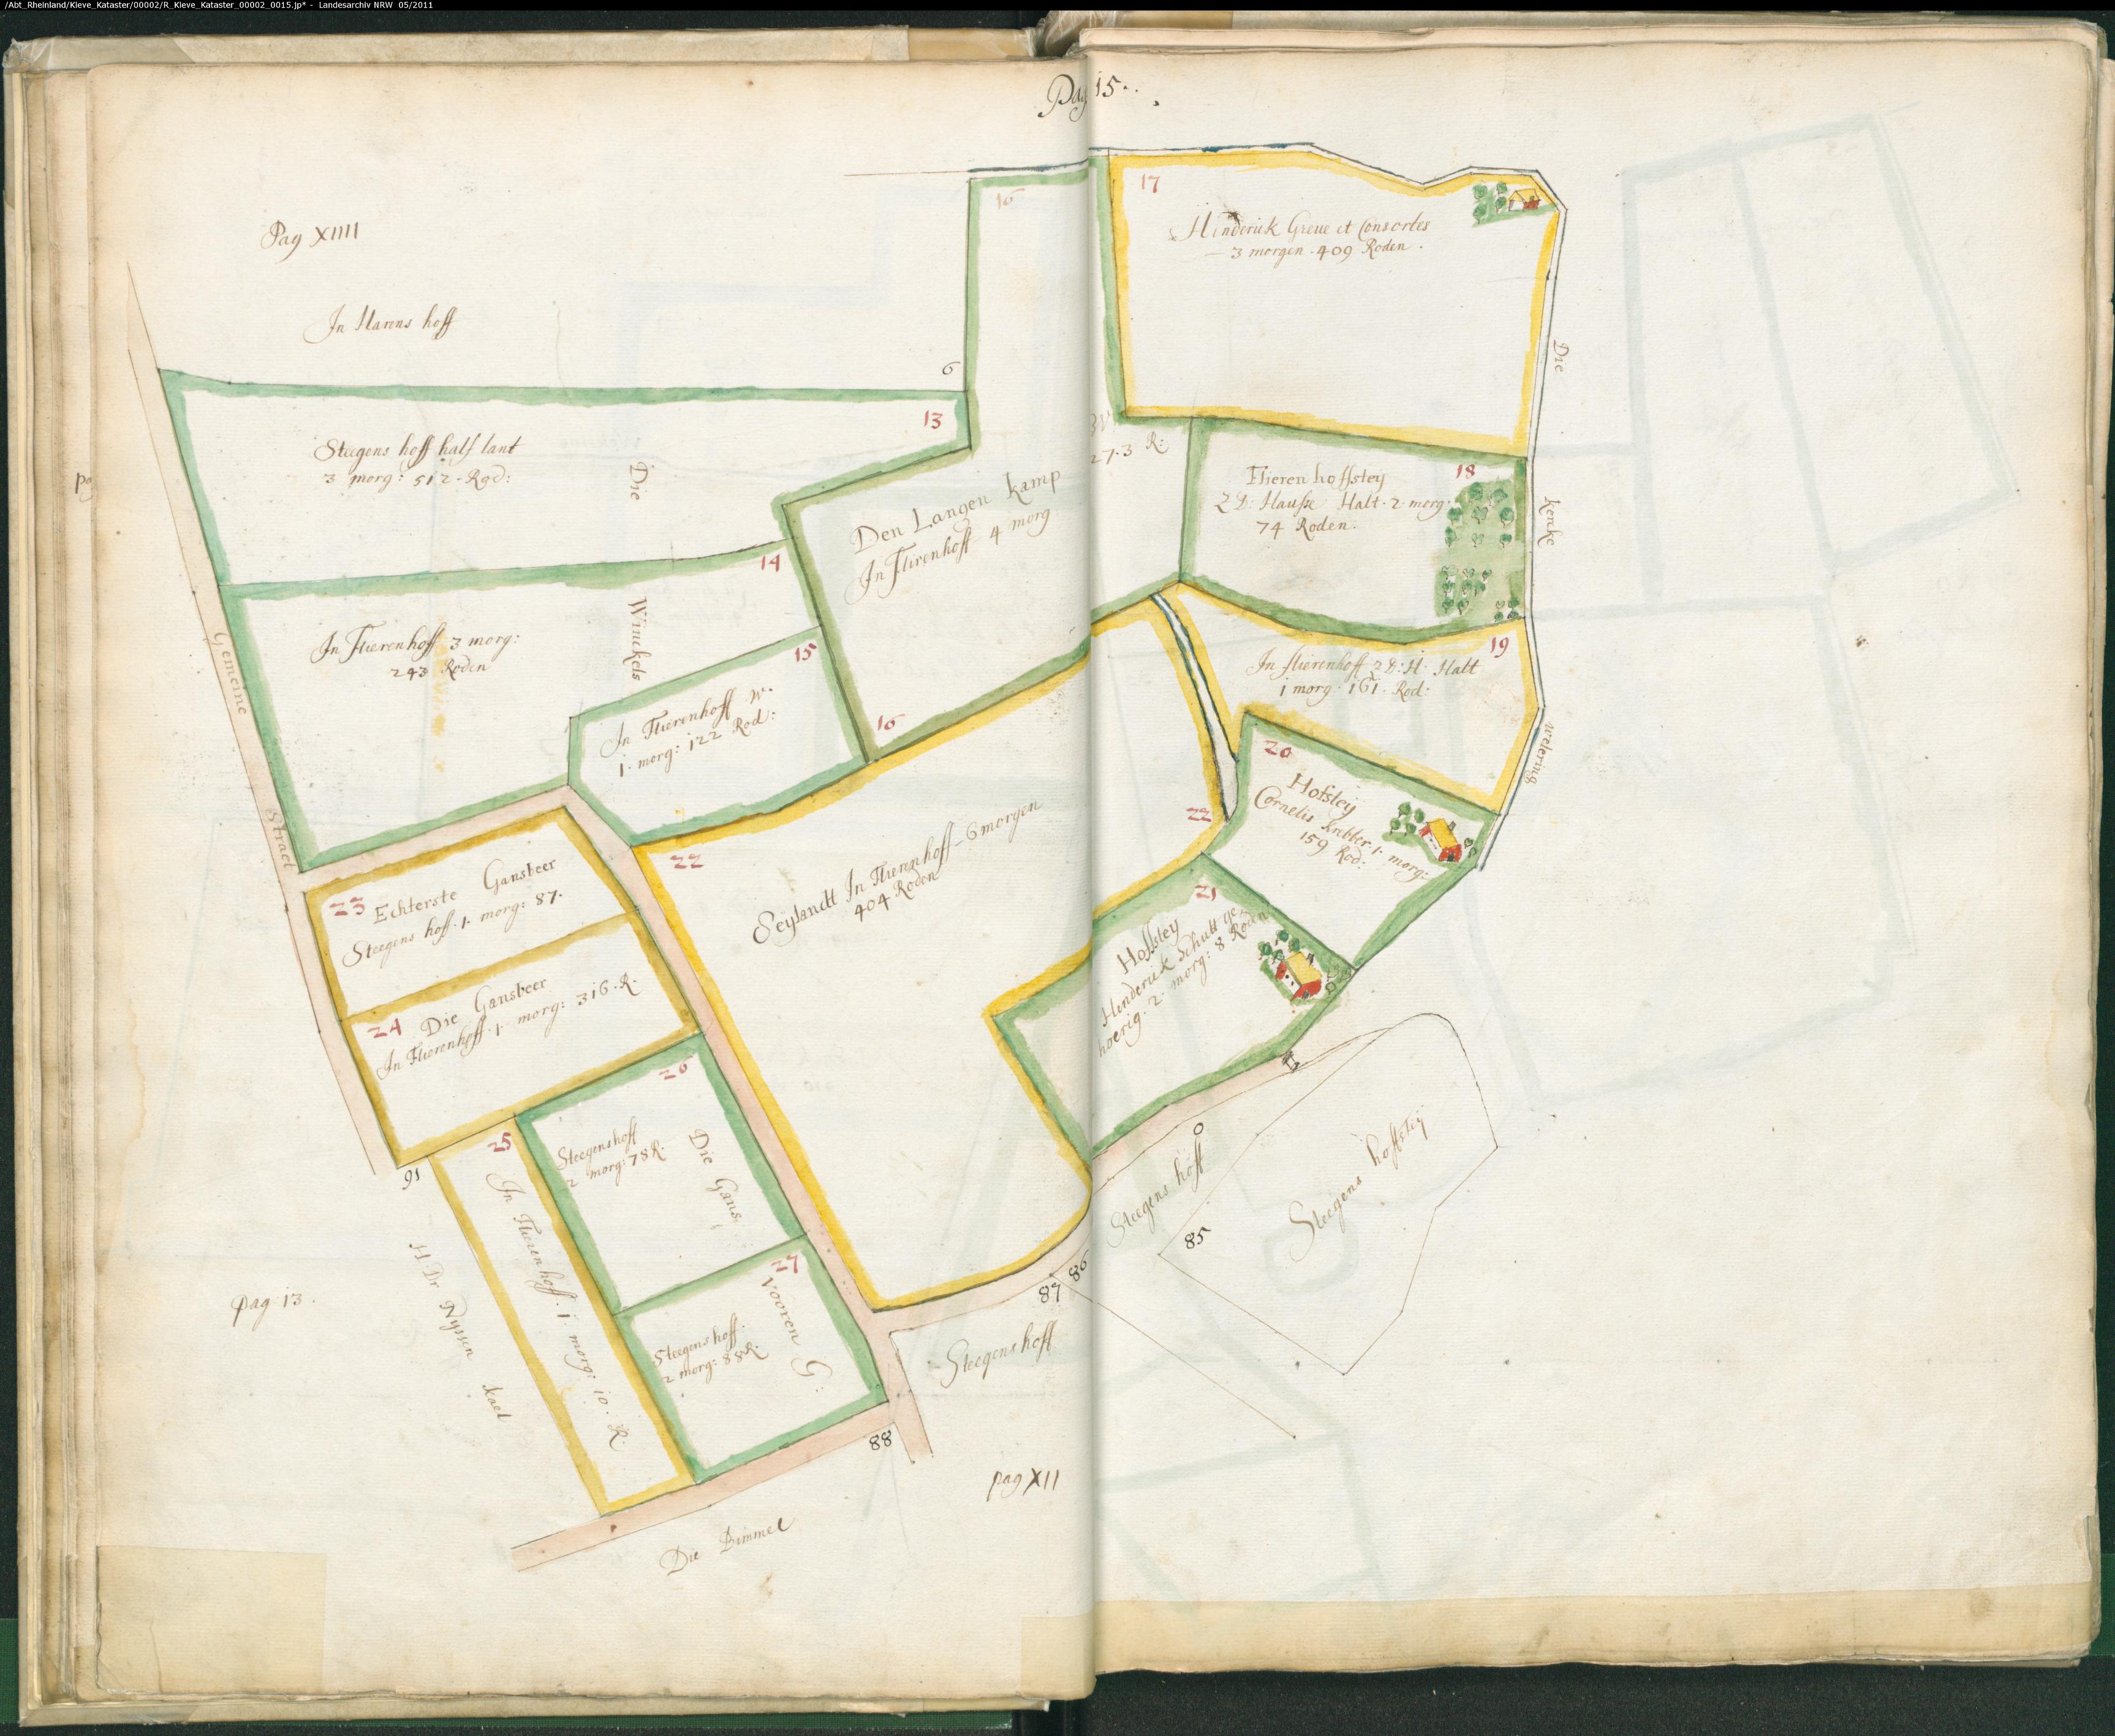 /Abt_Rheinland/Kleve_Kataster/00002/R_Kleve_Kataster_00002_0015.jp* - Landesarchiv NRW 05/2011
Pag 15.
Pag XIIII
In Harens hoff
6
13
Steegens hoff half lant
3 morg: 512. Rod:
Die
Winckels
14
In Flierenhoff 3 morg:
243 Roden
15
In Flierenhoff W.
1. morg: 122 Rod:
16
Den Langen Kamp
In Flirenhoff 4 morg
273 R:
16
17
Hinderick Greue et Consortes
3 morgen 409 Roden.
Die
kercke
wetering
18
Flieren hoffsteij
Halt. 2. morg:
74 Roden.
19
In flierenhoff Halt
1 morg. 161. Rod:
20
Hofsteij
Cornelis 1. morg:
159 Rod:
21
Hoffsteij
Henderick Schutt ge
hoerig. 2. morg: 8 Roden
22
22
Seijlandt In Flierenhoff 6 morgen
404 Roden
Gemeine
Straet
23 Echterste Gansbeer
Steegens hoff. 1. morg: 87.
24 Die Gansbeer
In Flierenhoff. 1. morg: 316. R.
25
In Flierenhoff. 1. morg: 10. R.
26
Steegenshoff
2 morg: 78 R.
Die Gans
27
Vooren G:
Steegens hoff.
2 morg: 88 R.
91
H Dr Nyssen
pag 13.
88
Die Bimmel
pag XII
Steegenshoff
87
86
Steegens hoff
0
85
Steegens hoffsteij